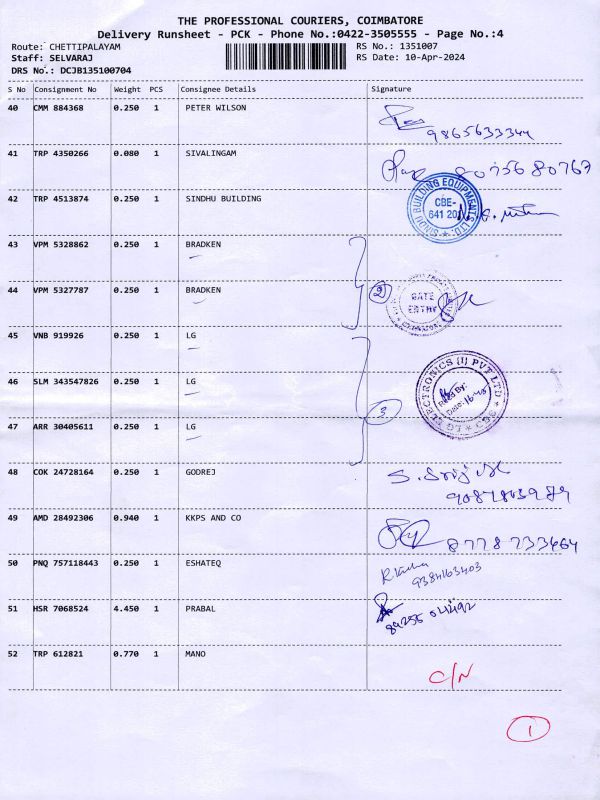 THE PROFESSIONAL COURIERS, COIMBATORE
Delivery Runsheet - PCK - Phone No.:0422-3505555 - Page No.:4
Route: CHETTIPALAYAM RS No.: 1351007
Staff: SELVARAJ RS Date: 10-Apr-2024
DRS No.: DCJB135100704
S No Consignment No Weight PCS Consignee Details Signature
40 CMM 884368 0.250 1 PETER WILSON
9865633344
41 TRP 4350266 0.080 1 SIVALINGAM 8075680767
42 TRP 4513874 0.250 1 SINDHU BUILDING
SINDU BUILDING EQUIPMENTS LTD.
CBE-
641 201
43 VPM 5328862 0.250 1 BRADKEN
44 VPM 5327787 0.250 1 BRADKEN
2
GATE
ENTRY
45 VNB 919926 0.250 1 LG
46 SLM 343547826 0.250 1 LG
47 ARR 30405611 0.250 1 LG
3
LG ELECTRONICS (I) PVT LTD
CBE
Recd By:
Date:
48 COK 24728164 0.250 1 GODREJ
49 AMD 28492306 0.940 1 KKPS AND CO
8778733464
50 PNQ 757118443 0.250 1 ESHATEQ
9384163403
51 HSR 7068524 4.450 1 PRABAL
52 TRP 612821 0.770 1 MANO
C/N
1